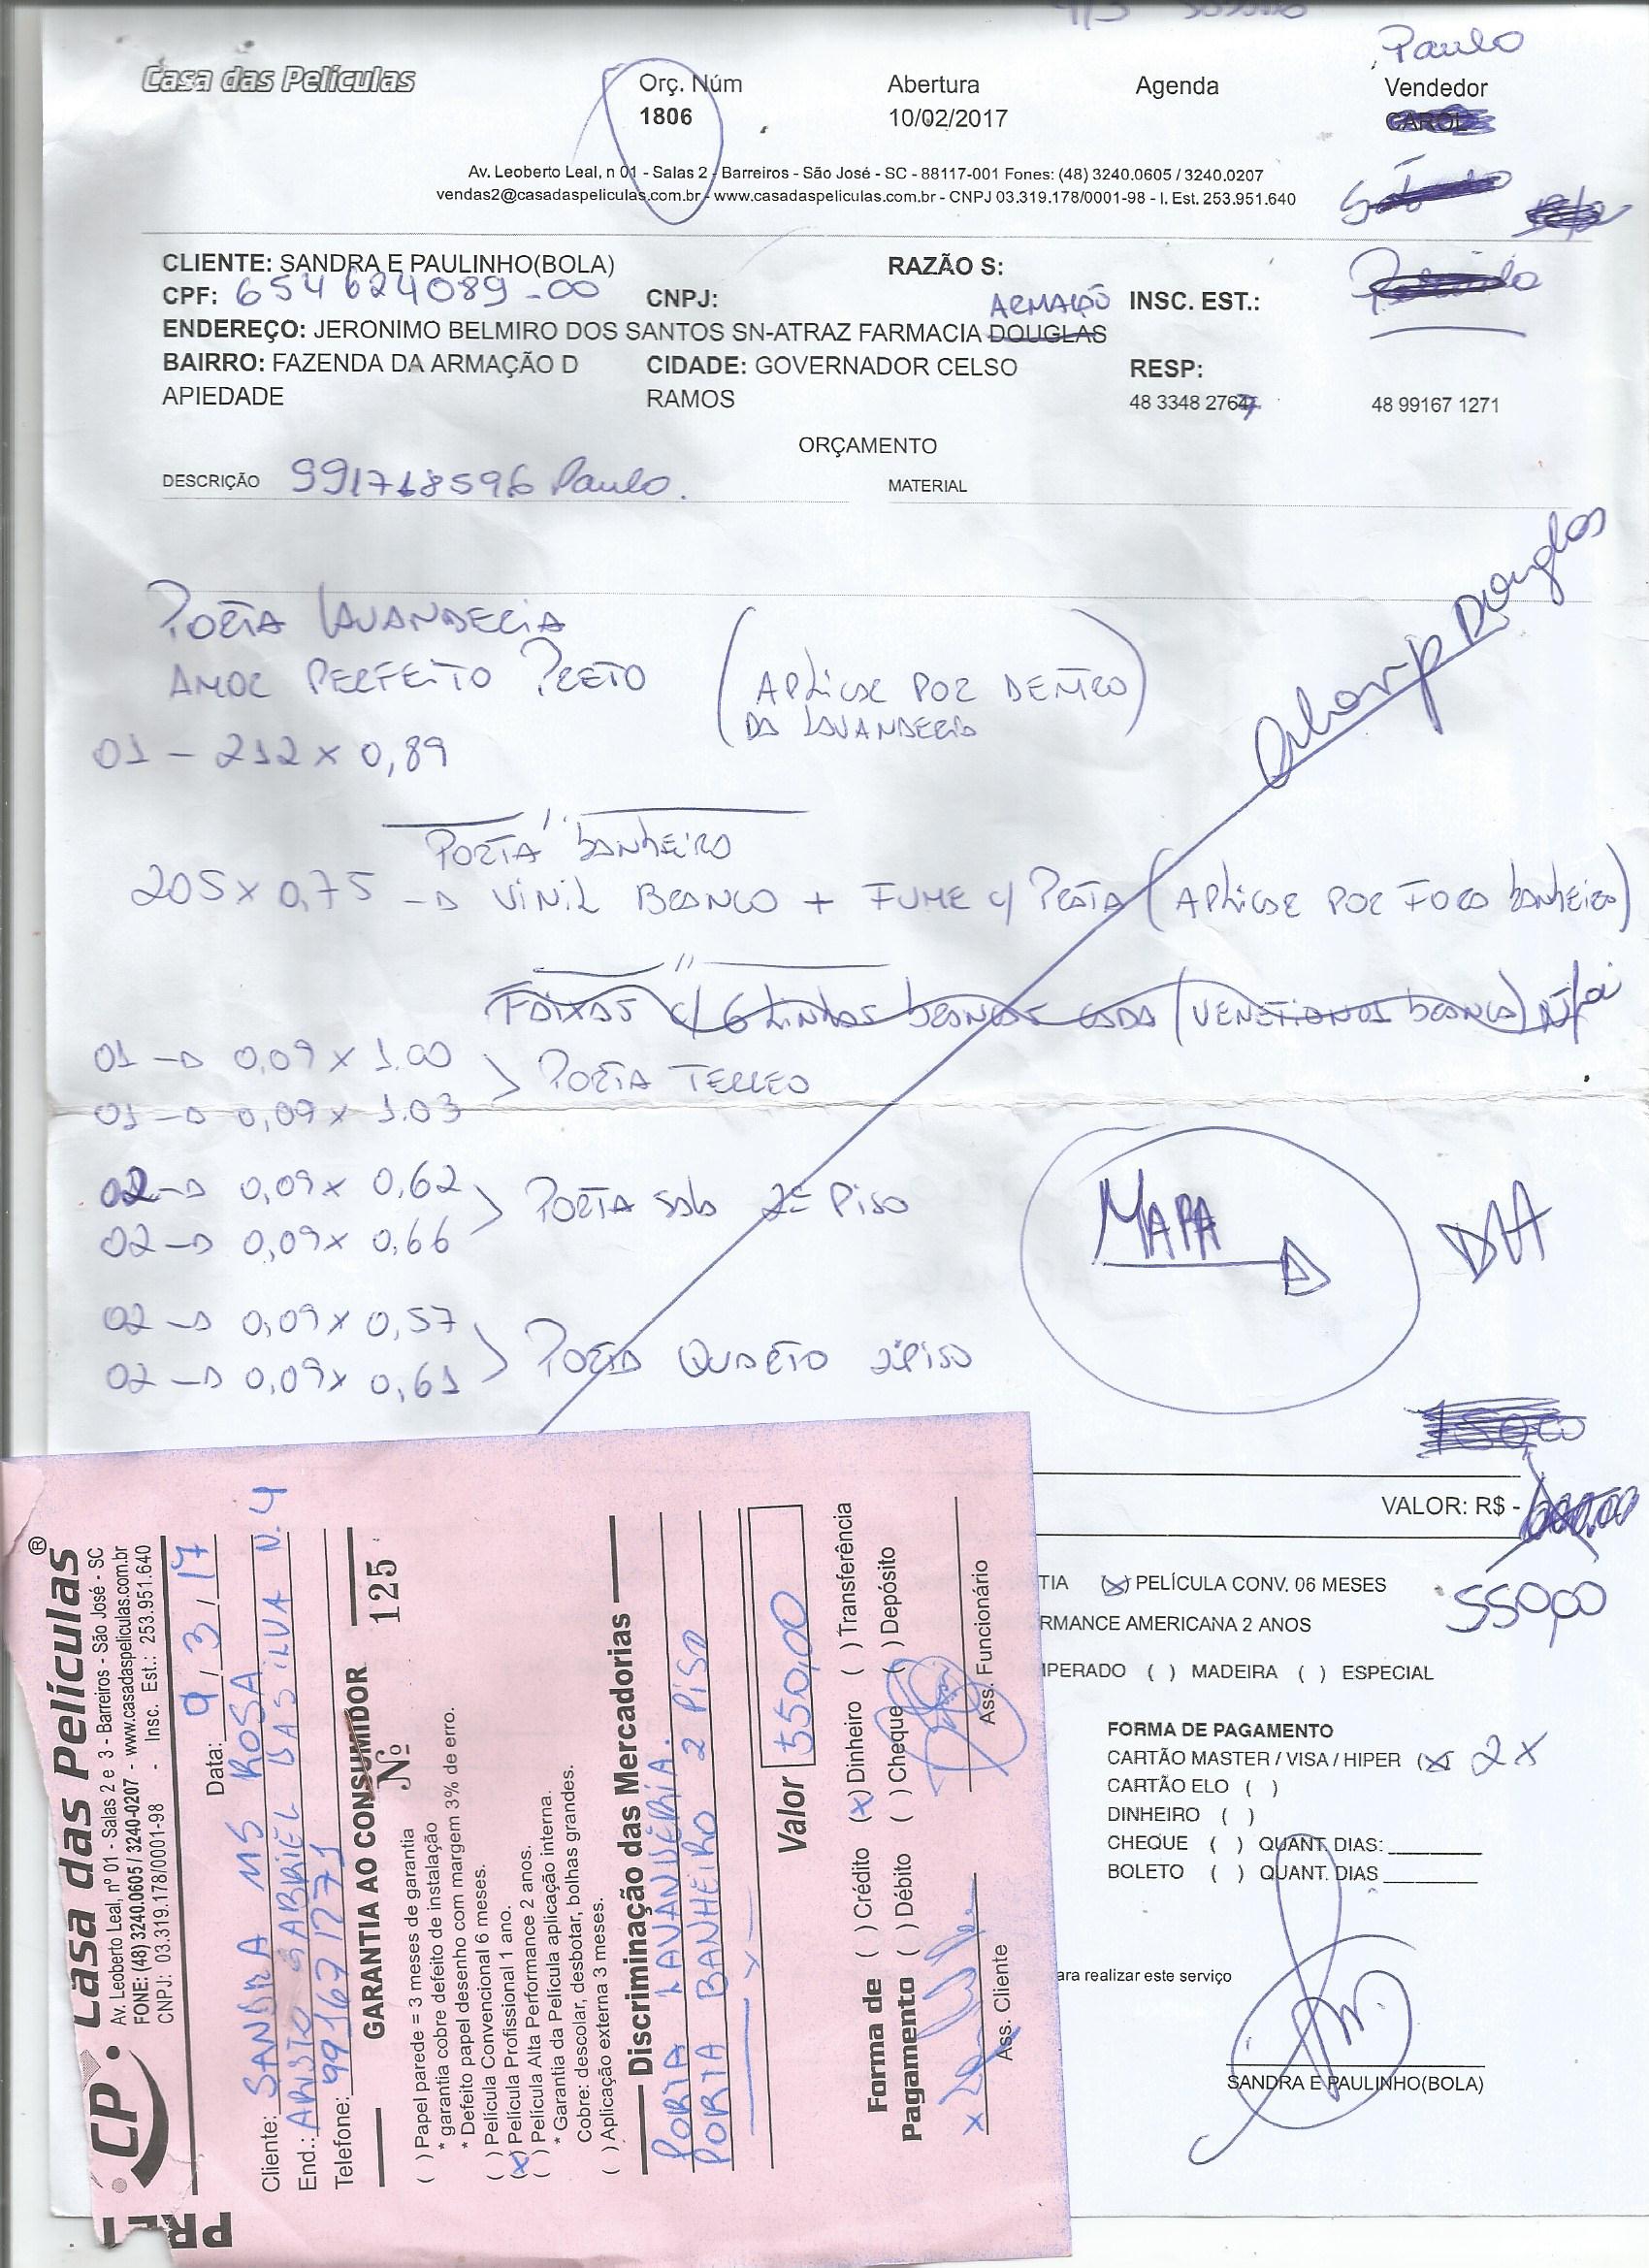 Paulo
Casa das Películas
Orç. Núm Abertura Agenda Vendedor
1806 10/02/2017 CAROL
Av. Leoberto Leal, n 01 - Salas 2 - Barreiros - São José - SC - 88117-001 Fones: (48) 3240.0605 / 3240.0207
vendas2@casadaspeliculas.com.br - www.casadaspeliculas.com.br - CNPJ 03.319.178/0001-98 - I. Est. 253.951.640
CLIENTE: SANDRA E PAULINHO(BOLA) RAZÃO S:
CPF: 654624089-00 CNPJ: ARMAÇÃO INSC. EST.:
ENDEREÇO: JERONIMO BELMIRO DOS SANTOS SN-ATRAZ FARMACIA DOUGLAS
BAIRRO: FAZENDA DA ARMAÇÃO D CIDADE: GOVERNADOR CELSO RESP:
APIEDADE RAMOS 48 3348 2767 48 99167 1271
ORÇAMENTO
DESCRIÇÃO 991718596 Paulo. MATERIAL
PORTA LAVANDERIA
AMOR PERFEITO PRETO (APLICAR POR DENTRO
DA LAVANDERIA)
01 - 212 x 0,89
Douglas
PORTA BANHEIRO
205 x 0,75 → VINIL BRANCO + FUME C/ PRATA (APLICAR POR FORA BANHEIRO)
FAIXAS C/ 6 LINHAS BRANCAS CADA (VENEZIANAS BRANCA)
01 → 0,09 x 1.00
PORTA TERREO
01 → 0,09 x 1.03
02 → 0,09 x 0,62
PORTA SALA 2º PISO
02 → 0,09 x 0,66
MAPA →
02 → 0,09 x 0,57
PORTA QUARTO 2º PISO
02 → 0,09 x 0,61
VALOR: R$ - 600,00
550,00
TIA (X) PELÍCULA CONV. 06 MESES
RMANCE AMERICANA 2 ANOS
MPERADO ( ) MADEIRA ( ) ESPECIAL
FORMA DE PAGAMENTO
CARTÃO MASTER / VISA / HIPER (X) 2X
CARTÃO ELO ( )
DINHEIRO ( )
CHEQUE ( ) QUANT. DIAS:
BOLETO ( ) QUANT. DIAS
ara realizar este serviço
SANDRA E PAULINHO(BOLA)
CP Casa das Películas ®
Av. Leoberto Leal, nº 01 - Salas 2 e 3 - Barreiros - São José - SC
FONE: (48) 3240.0605 / 3240-0207 - www.casadaspeliculas.com.br
CNPJ: 03.319.178/0001-98 - Insc. Est.: 253.951.640
Data: 9/3/17
Cliente: SANDRA MS ROSA
End.: ARISTO GABRIEL DA SILVA N. 4
Telefone: 991671271
GARANTIA AO CONSUMIDOR
Nº 125
( ) Papel parede = 3 meses de garantia
* garantia cobre defeito de instalação
* Defeito papel desenho com margem 3% de erro.
( ) Película Convencional 6 meses.
(X) Película Profissional 1 ano.
( ) Película Alta Performance 2 anos.
* Garantia da Película aplicação interna.
Cobre: descolar, desbotar, bolhas grandes.
( ) Aplicação externa 3 meses.
Discriminação das Mercadorias
PORTA LAVANDÉRIA.
PORTA BANHEIRO 2 PISO
Valor 550,00
Forma de Pagamento
( ) Crédito (X) Dinheiro ( ) Transferência
( ) Débito ( ) Cheque ( ) Depósito
Ass. Cliente Ass. Funcionário